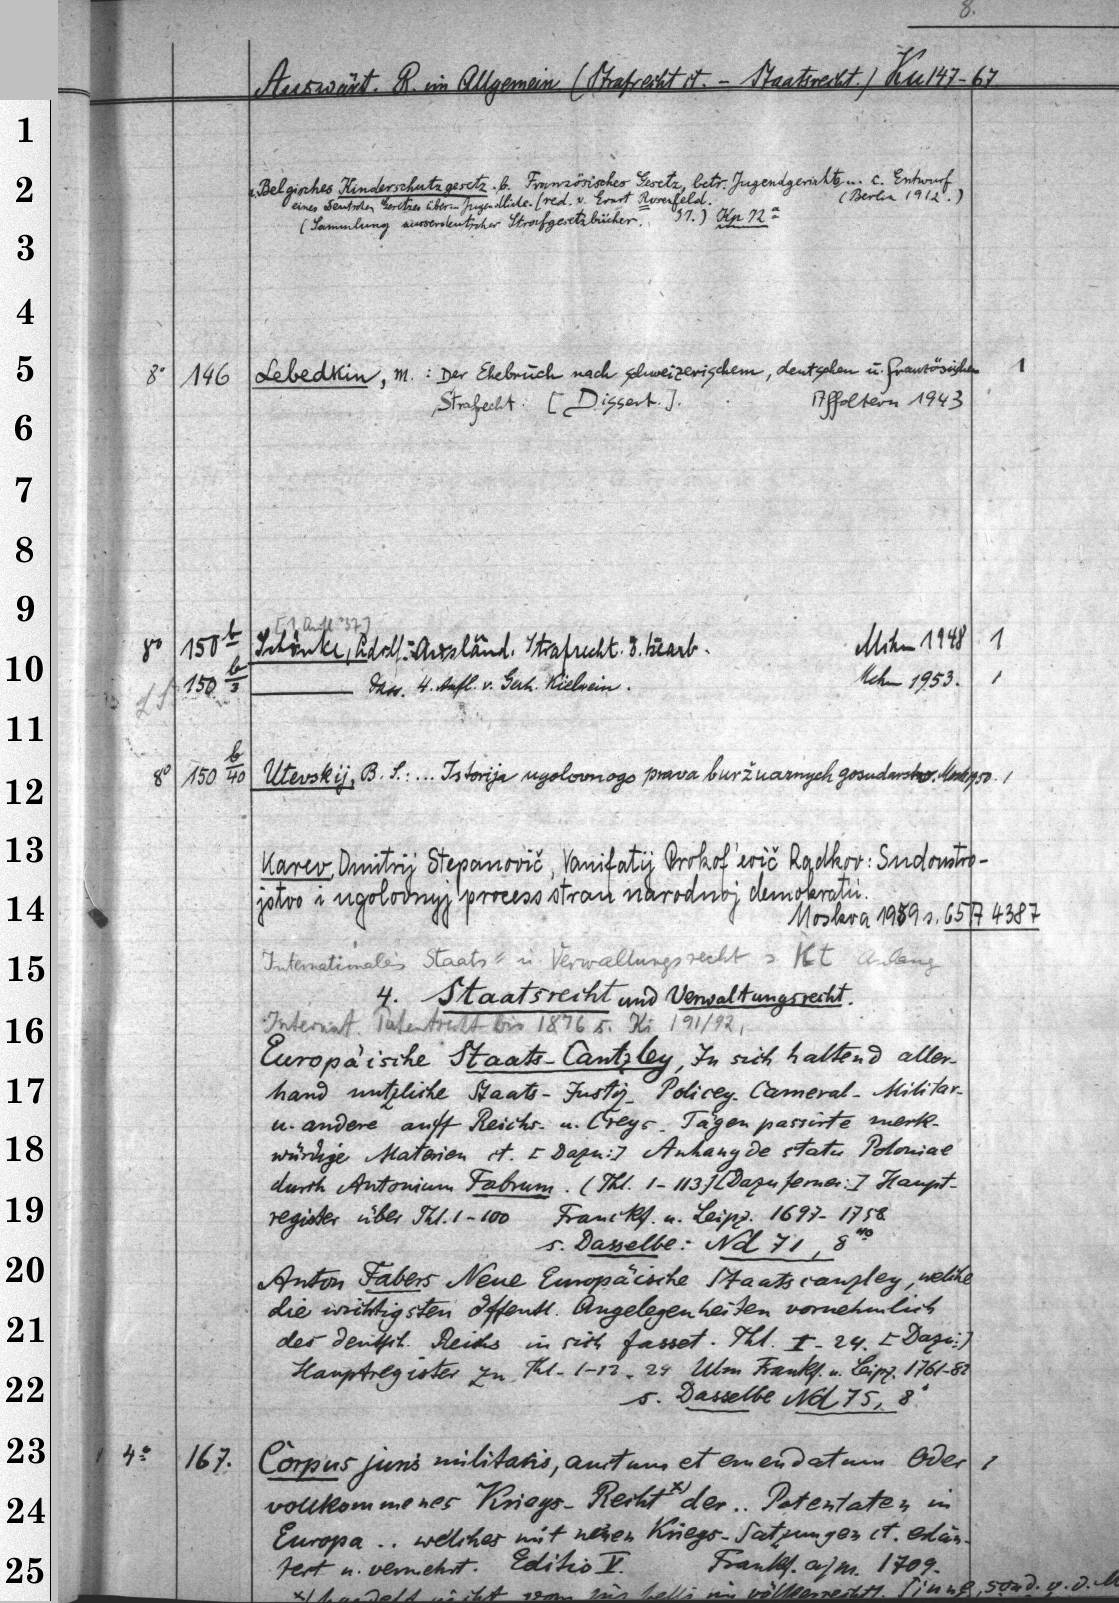 8.
Auswärt. R. im Allgemein (Strafrecht ct. - Staatsrecht.) Ku 147-67
1
2 a. Belgisches Kinderschutzgesetz. b. Französisches Gesetz, betr. Jugendgerichte u. c. Entwurf
eines Deutschen Gesetzes über Jugendliche. (red. v. Ernst Rosenfeld. (Berlin 1912.)
(Sammlung ausserdeutscher Strafgesetzbücher. 31.) Kp 12ª
3
4
5 8° 146 Lebedkin, M.: Der Ehebruch nach schweizerischem, deutschen u. französischen 1
Strafrecht. [Dissert.]. Affoltern 1943
6
7
8
9
[1. Aufl. '37]
8° 150 b Schönke, Adolf: Ausländ. Strafrecht. 3. Bearb. Mchn 1948 1
10 150 b/3 Dass. 4. Aufl. v. Gerh. Kielwein. Mchn 1953. 1
LS
11
12 8° 150 b/40 Utevskij, B. S.: ... Istorija ugolovnogo prava buržuaznych gosudarstv. Mosk 1950. 1
13 Karev, Dmitrij Stepanovič, Vanifatij Prokof'evič Radkov: Sudoustro-
14 jstvo i ugolovnyj process stran narodnoj demokratii.
Moskva 1959 s. 65 A 4387
15 Internationales Staats- u. Verwaltungsrecht s Kt Anfang
4. Staatsrecht und Verwaltungsrecht.
16 Internat. Patentrecht bis 1876 s. Ki 191/92,
Europäische Staats-Cantzley, In sich haltend aller-
17 hand nutzliche Staats- Justiz- Policey- Cameral- Militar-
u. andere auff Reichs- u. Creys- Tägen passirte merk-
18 würdige Materien ct. [Dazu:] Anhang de statu Poloniae
durch Antonium Fabrum. (Thl. 1-113) [Dazu ferner:] Haupt-
19 register über Thl. 1-100 Franckf. u. Leipz. 1697-1758
s. Dasselbe: Nd 71, 8vo
20 Anton Fabers Neue Europäische Staatscanzley, welche
die wichtigsten öffentl. Angelegenheiten vornehmlich
21 des deutsch. Reichs in sich fasset. Thl. I-24. [Dazu:]
Hauptregister zu Thl. 1-12. 24 Ulm Frankf. u. Leipz. 1761-82
22 s. Dasselbe Nd 75, 8°
23 4° 167. Corpus juris militaris, auctum et emendatum Oder 1
24 vollkommenes Kriegs-Recht x) der .. Potentaten in
Europa .. welches mit neuen Kriegs-Satzungen ct. erläu-
25 tert u. vermehrt. Editio V. Frankf. a/m. 1709.
x) handelt nicht vom jus belli im völkerrechtl. Sinne, sond. v. d. M